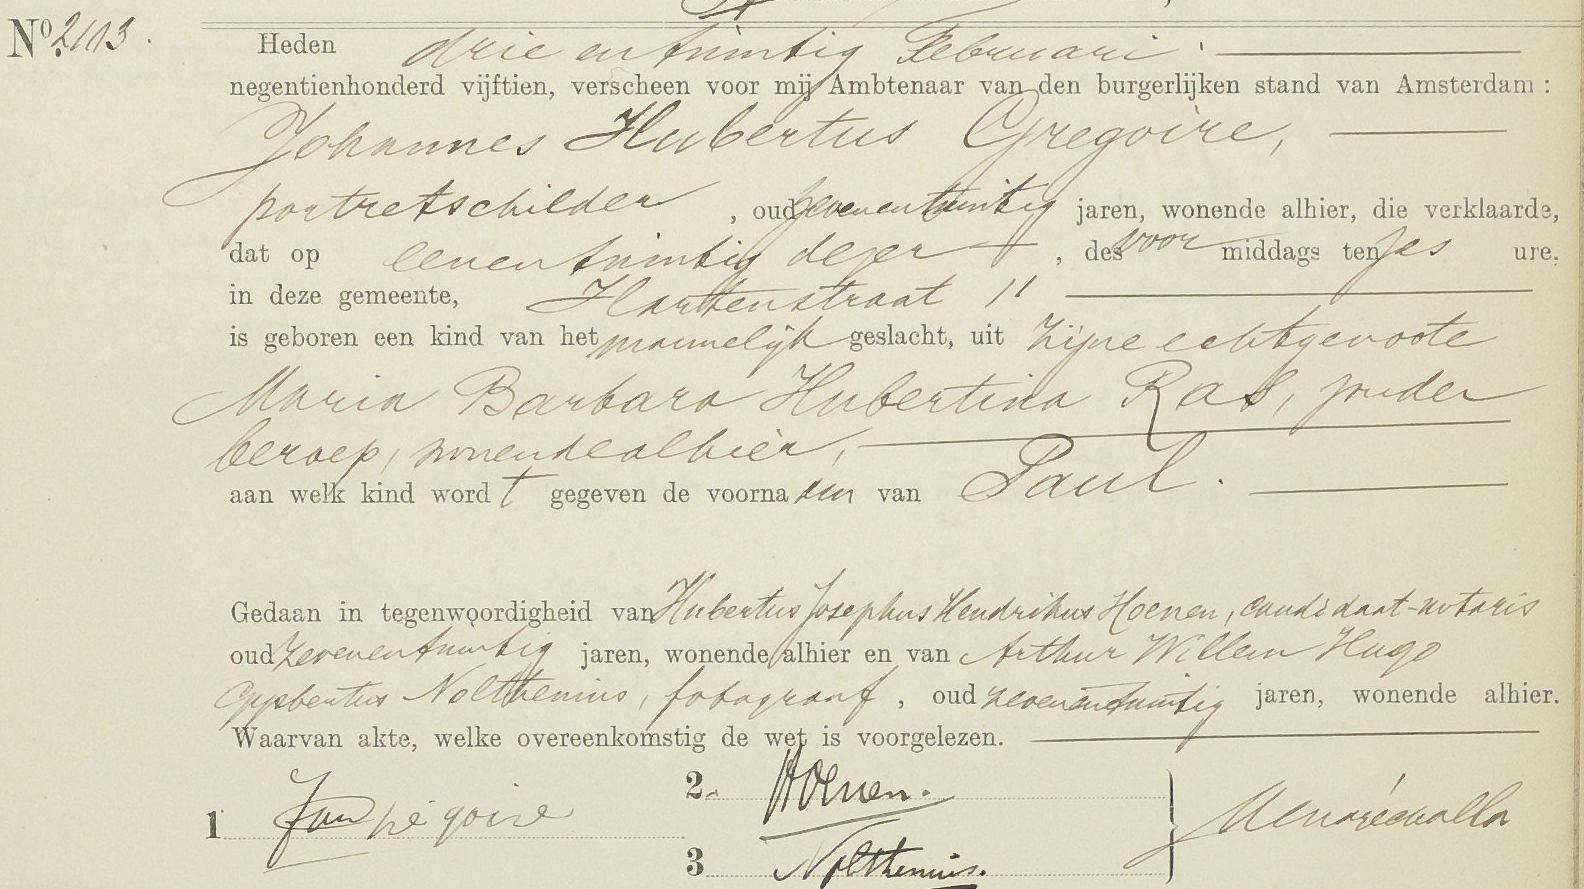 No. 2103.
Heden drie en twintig Februari
negentienhonderd vijftien, verscheen voor mij Ambtenaar van den burgerlijken stand van Amsterdam:
Johannes Hubertus Gregoire,
portretschilder, oud zevenentwintig jaren, wonende alhier, die verklaarde,
dat op eenentwintig dezer, des voor middags ten zes ure,
in deze gemeente, Hartenstraat 11
is geboren een kind van het mannelijk geslacht, uit zijne echtgenoote
Maria Barbara Hubertina Ras, zonder
beroep, wonende alhier,
aan welk kind wordt gegeven de voornaam van Paul.
Gedaan in tegenwoordigheid van Hubertus Josephus Hendrikus Hoenen, candidaat-notaris
oud zevenentwintig jaren, wonende alhier en van Arthur Willem Hugo
Nolthenius, fotograaf, oud zevenentwintig jaren, wonende alhier.
Waarvan akte, welke overeenkomstig de wet is voorgelezen.
2. Hoenen.
1 Jan Grégoire
3 Nolthenius.